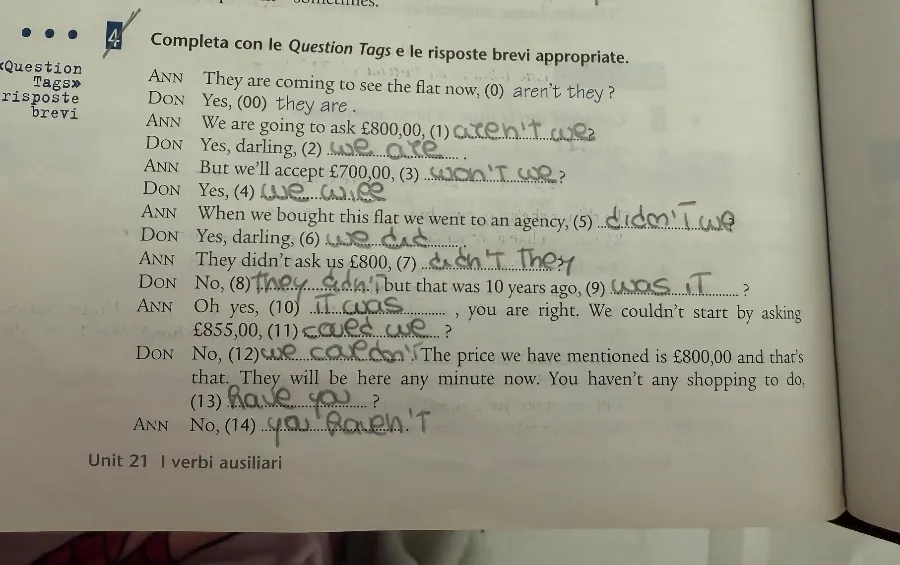 sometimes.
4 Completa con le Question Tags e le risposte brevi appropriate.
«Question
Tags»
risposte
brevi
ANN They are coming to see the flat now, (0) aren't they ?
DON Yes, (00) they are .
ANN We are going to ask £800,00, (1) aren't we?
DON Yes, darling, (2) we are .
ANN But we'll accept £700,00, (3) won't we ?
DON Yes, (4) we will
ANN When we bought this flat we went to an agency, (5) didn't we?
DON Yes, darling, (6) we did .
ANN They didn't ask us £800, (7) didn't they?
DON No, (8) they didn't but that was 10 years ago, (9) was it ?
ANN Oh yes, (10) it was , you are right. We couldn't start by asking
£855,00, (11) coued we ?
DON No, (12) we couedn't. The price we have mentioned is £800,00 and that's
that. They will be here any minute now. You haven't any shopping to do,
(13) have you ?
ANN No, (14) you haven't
Unit 21 I verbi ausiliari